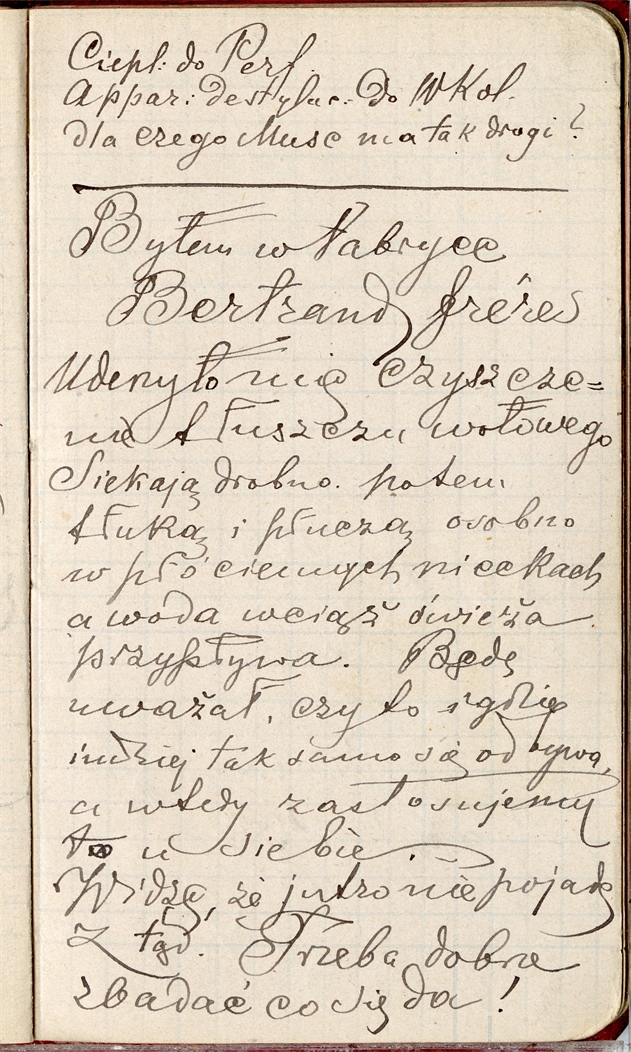 Ciepl: do Perf.
Appar: destylac: do WKol.
dla czego Musc ma tak drogi?
Byłem w fabryce
Bertrand frères
Uderzyło mię czyszcze=
nie tłuszczu wołowego
Siekają drobno. potem
tłuką i płuczą osobno
w płóciennych nieckach
a woda wciąż świeża
przypływa. Będę
uważał, czy to i gdzie
indziej tak samo się odbywa,
a wtedy zastosujemy
to u siebie.
Widzę, że jutro nie pojadę
z tąd. Trzeba dobrze
zbadać co się da!